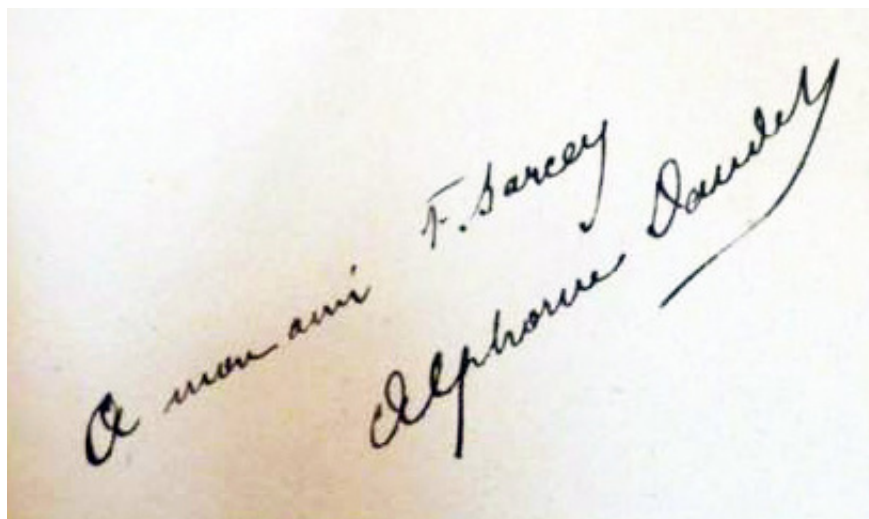 A mon ami F. Sarcey
Alphonse Daudet